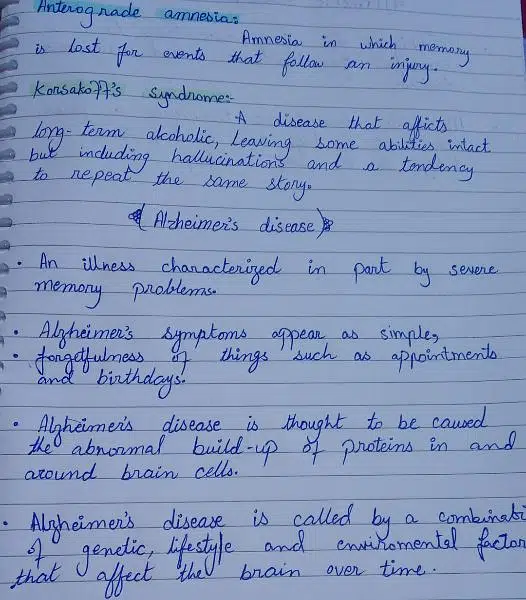 Anterograde amnesia:
Amnesia in which memory
is lost for events that follow an injury.
Korsakoff's syndrome:-
A disease that afficts
long-term alcoholic, Leaving some abilities intact
but including hallucinations and a tendency
to repeat the same story.
Alzheimer's disease
• An illness characterized in part by severe
memory problems.
• Alzheimer's symptoms appear as simple,
• forgetfulness of things such as appointments
and birthdays.
• Alzheimer's disease is thought to be caused
the abnormal build-up of proteins in and
around brain cells.
• Alzheimer's disease is called by a combinati
of genetic, lifestyle and enviromental factor
that affect the brain over time.